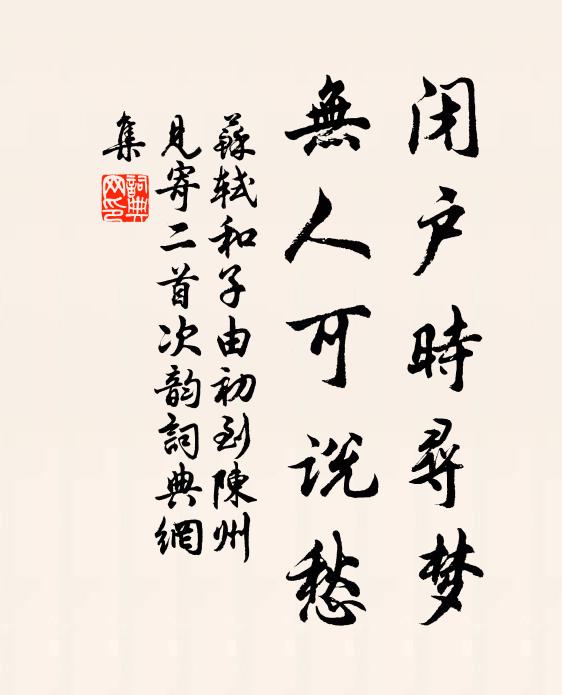 闭户時尋梦
無人可说愁
蘇軾和子由初到陳州
見寄二首次韵詞典網
集
詞典网印